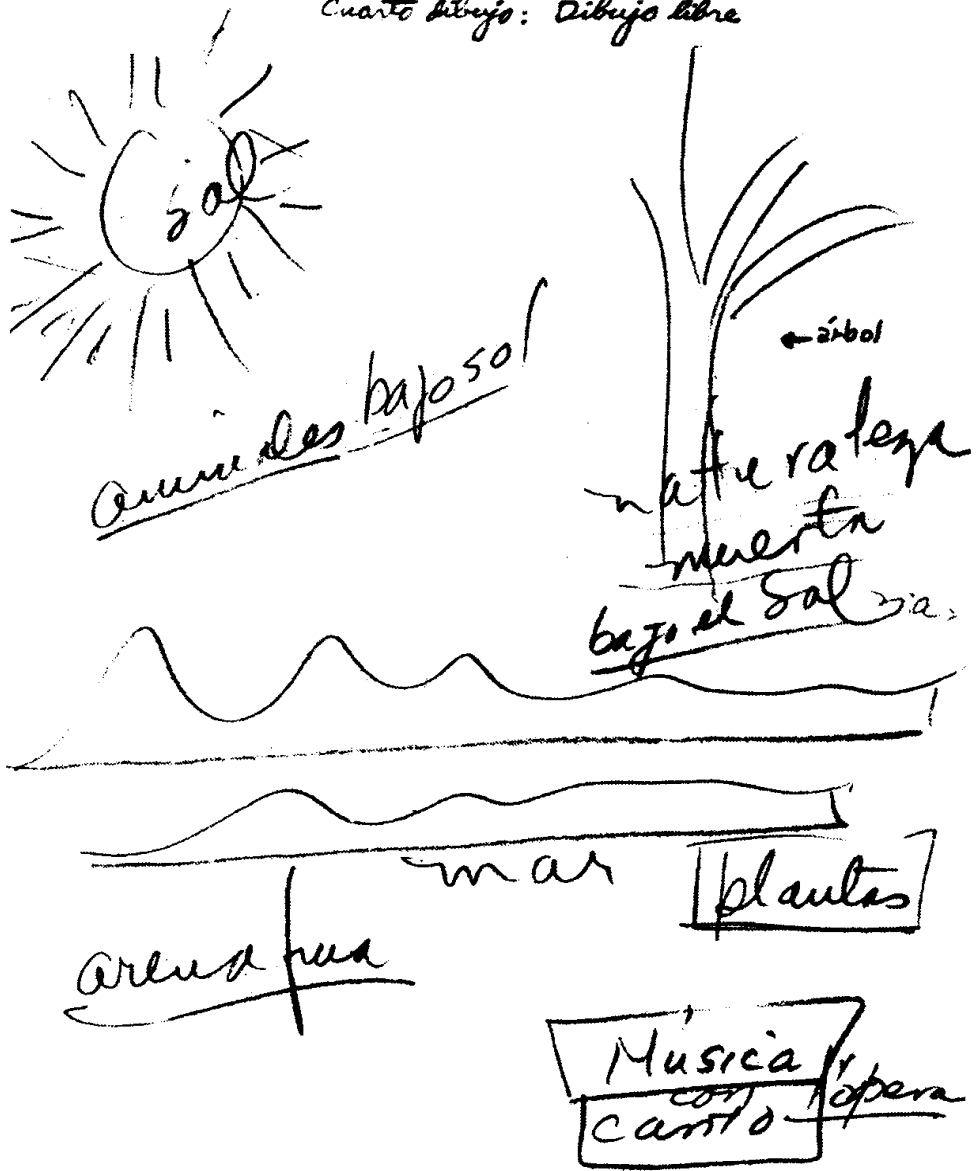 Cuarto dibujo: Dibujo libre
sol
←árbol
animales bajo sol
naturaleza
muerta
bajo el Sol
mar
plantas
arena
Música
con
canto
ópera